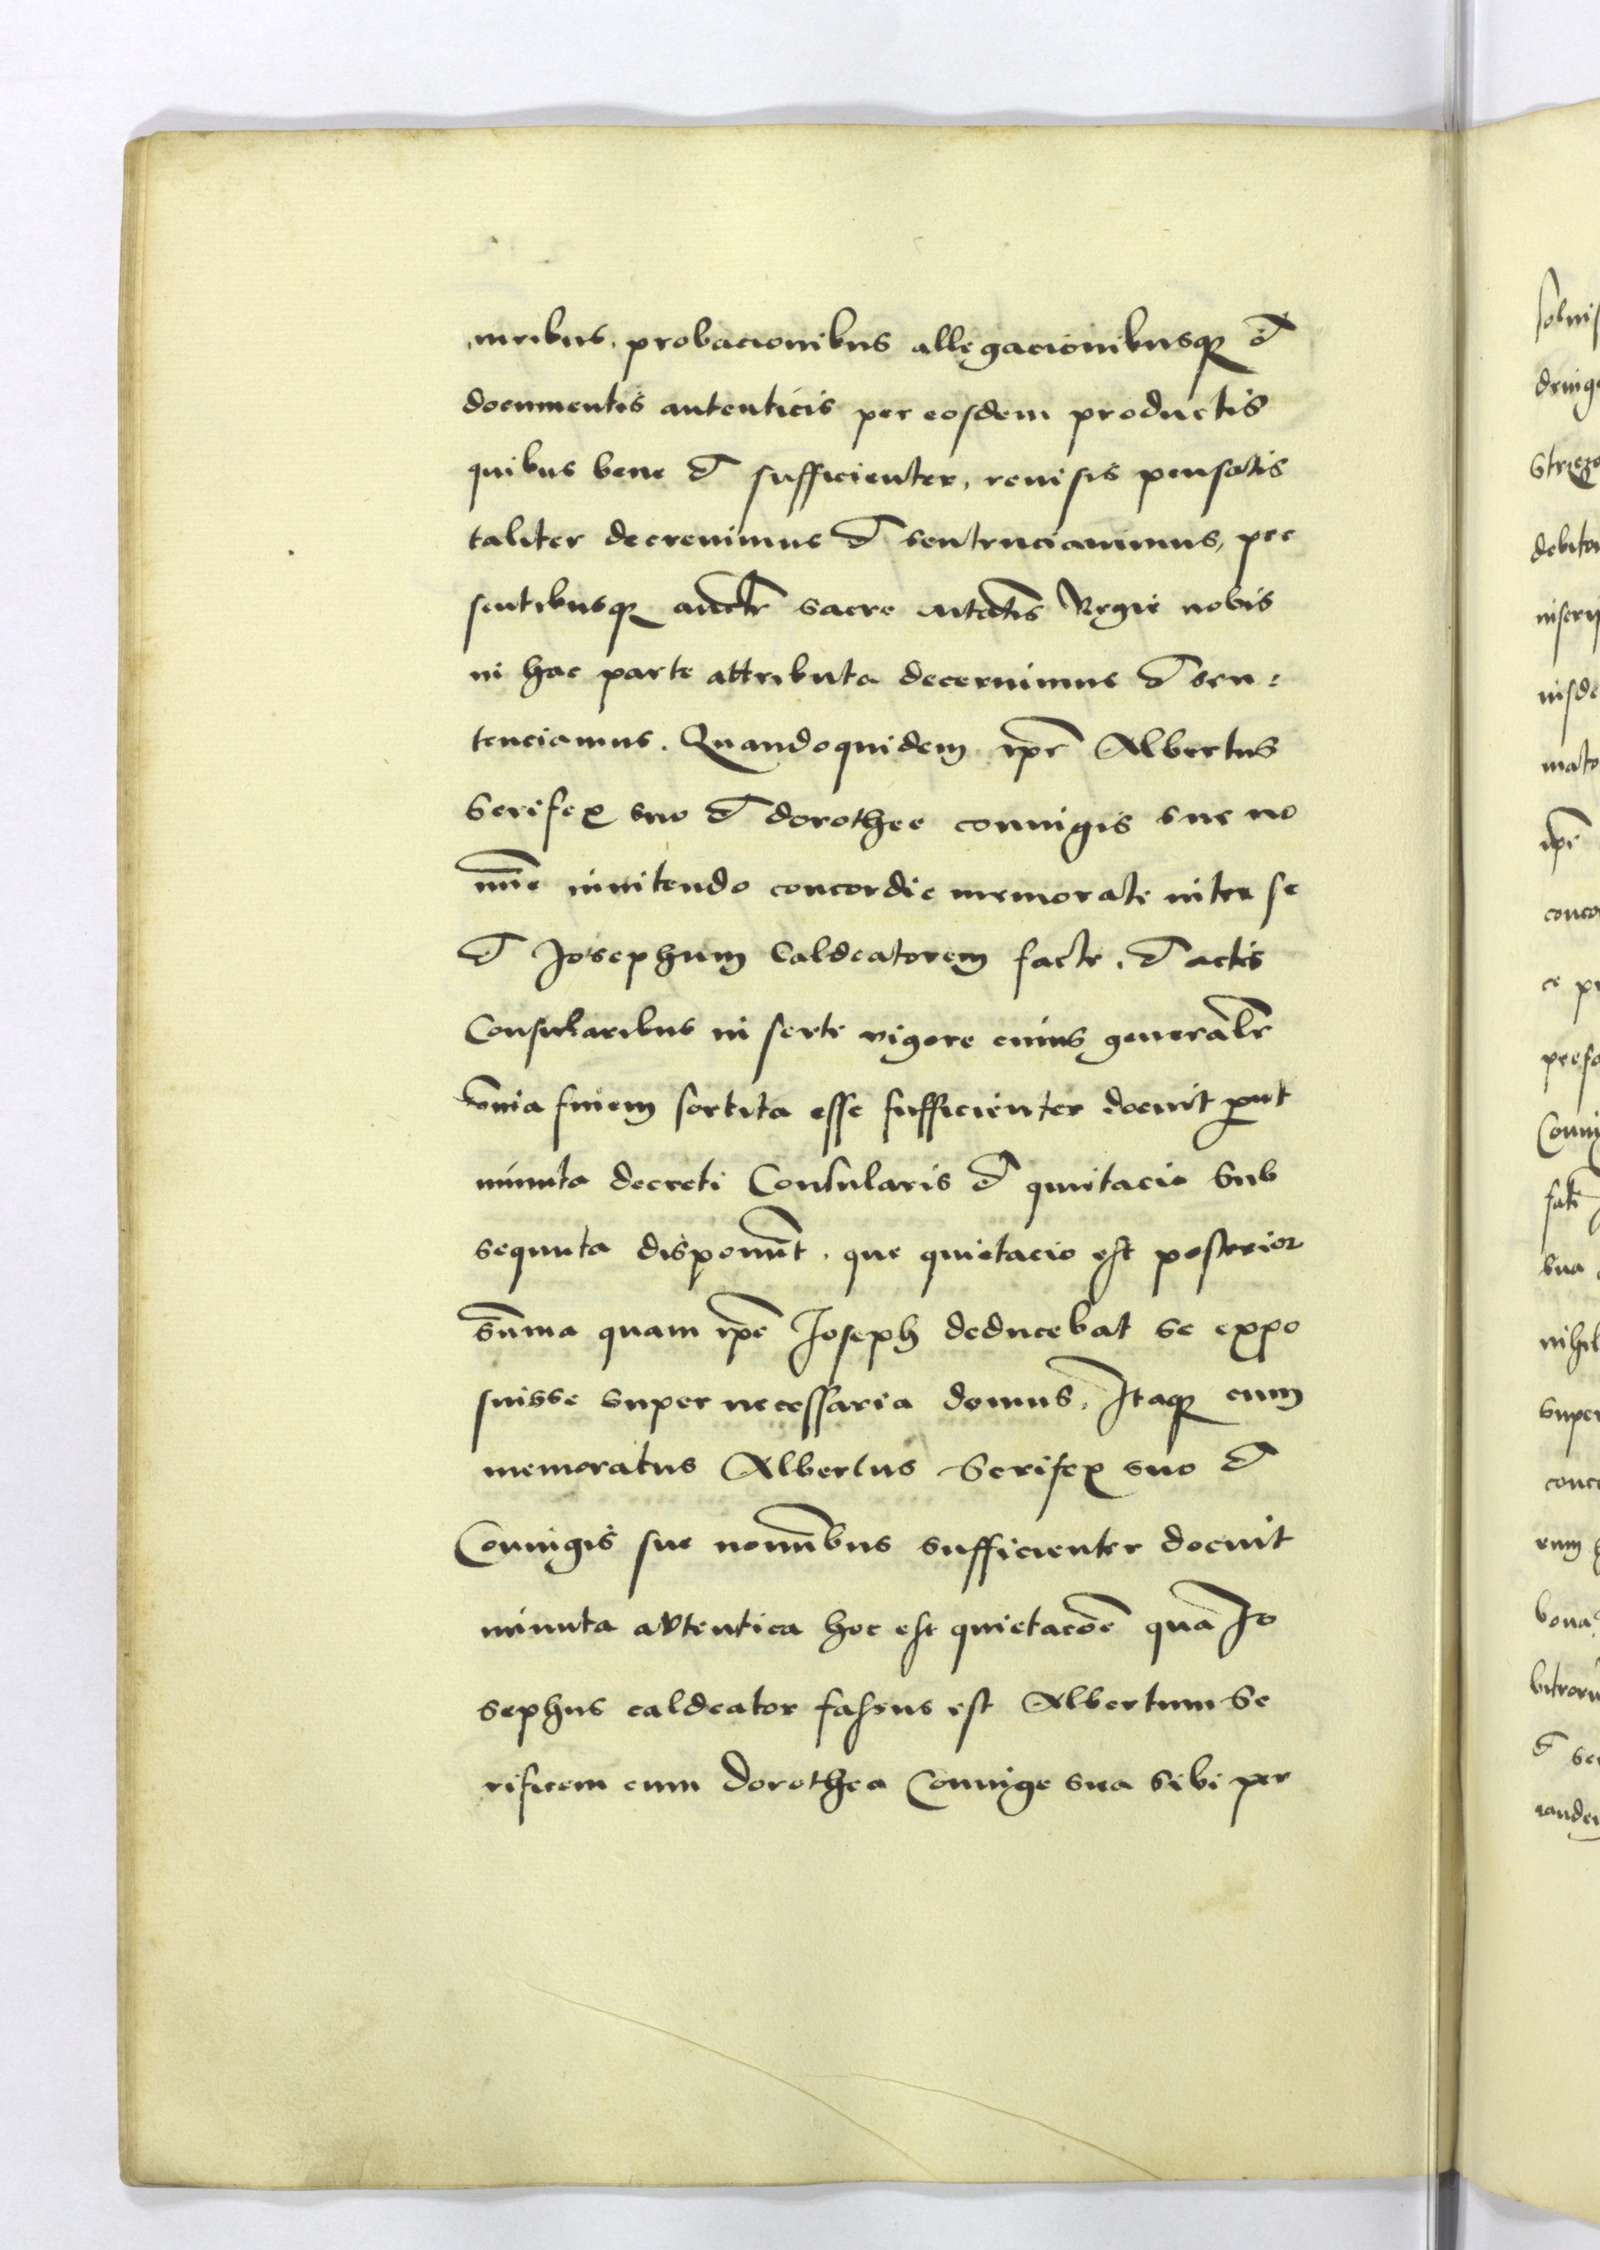 iuribus, probacionibus allegacionibusq et
documentis autenticis per eosdem productis
quibus bene et sufficienter, reuisis pensatis
taliter decreuimus et sentenciauimus, pre
sentibusq auctte sacre mtatis Regie nobis
in hac parte attributa decernimus et sen:
tenciamus. Quandoquidem ipe Albertus
Serifex suo et dorothee coniugis sue no
mie innitendo concordie memorate inter se
et Josephum Caldeatorem facte, et actis
Consularibus in serte vigore cuius generalr
omia finem sortita esse sufficienter docuit put
minuta decreti Consularis et quitacio Sub
sequuta disponunt, que quietacio est posterior
suma quam ipe Joseph deducebat se expo
suisse super necessaria domus, Itaq cum
memoratus Albertus Serifex suo et
Coniugis sue nomibus sufficienter docuit
minuta autentica hoc est quietacoe qua Jo
sephus caldeator fassus est Albertum Se
rificem cum dorothea Coniuge sua Sibi per